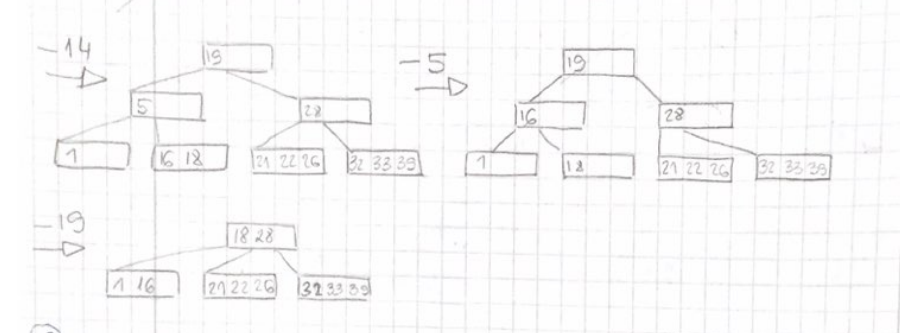 -14
19
5 28
1 16 18 21 22 26 32 33 39
-5
19
16 28
1 18 21 22 26 32 33 39
-19
18 28
1 16 21 22 26 32 33 39